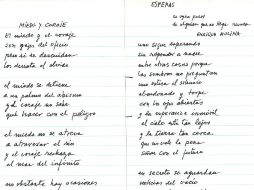 MIEDO Y CORAJE
El miedo y el coraje
son gajes del oficio
pero si se descuidan
los derrota el olvido
el miedo se detiene
a un palmo del abismo
y el coraje no sabe
qué hacer con el peligro
el miedo no se atreve
a atravesar el río
y el coraje rechaza
el mar del infinito
no obstante hay ocasiones
ESPERAS
es que pasas
de alguien que no llega nunca
uno sigue esperando
sin responder a nadie
entre otras cosas porque
las sombras no preguntan
uno estira el silencio
abandonado y torpe
con los ojos abiertos
y la esperanza inmóvil
el cielo está tan lejos
y la tierra tan cerca
que no vale la pena
soñar con el futuro
en secreto se aguardan
noticias del